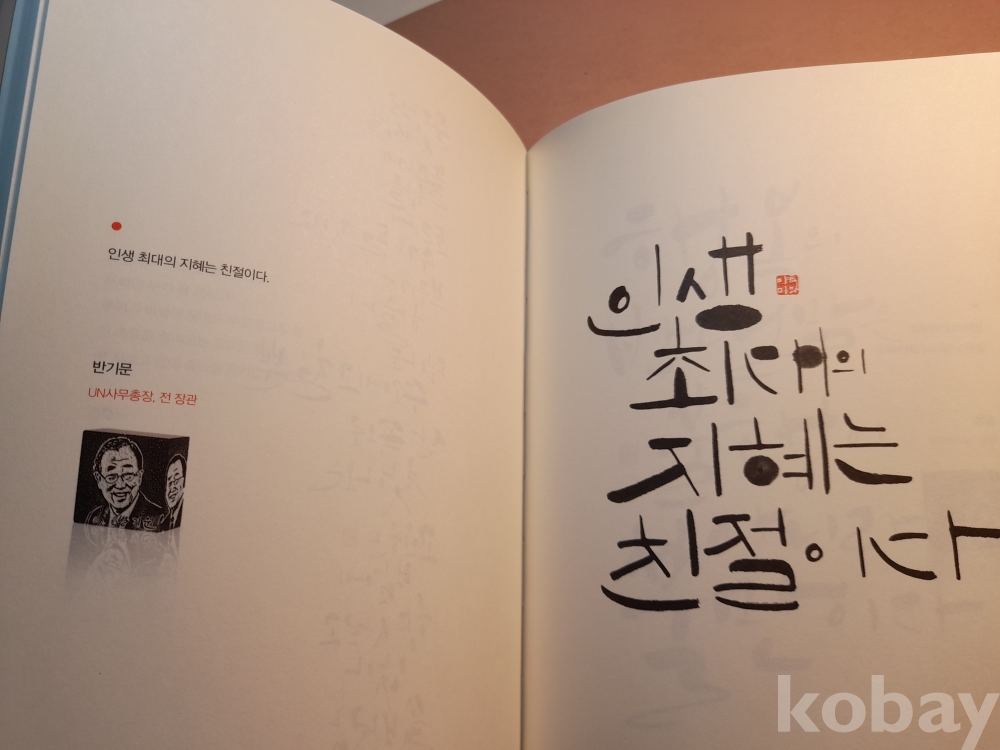 인생 최대의 지혜는 친절이다.
반기문
UN사무총장, 전 장관
인생
최대의
지혜는
친절이다
kobay